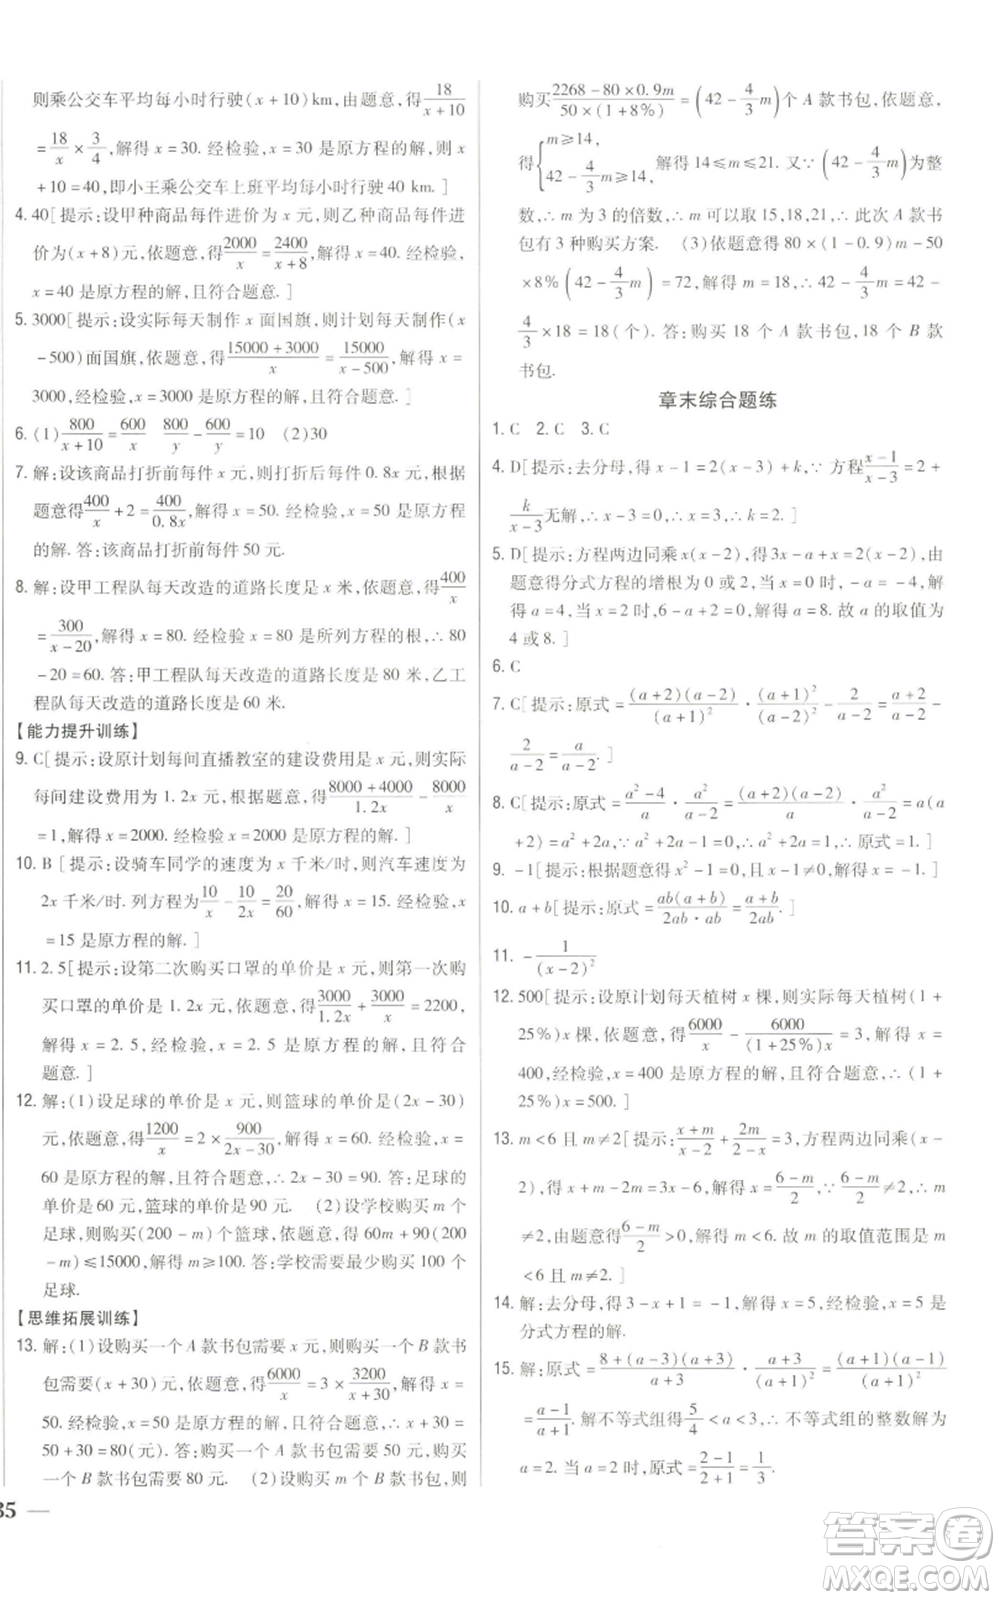 则乘公交车平均每小时行驶(x+10)km,由题意,得18/(x+10)
=18/x×3/4,解得x=30.经检验,x=30是原方程的解,∴x
+10=40,即小王乘公交车上班平均每小时行驶40 km.]
4. 40[提示:设甲种商品每件进价为x元,则乙种商品每件进
价为(x+8)元,依题意,得2000/x=2400/(x+8),解得x=40.经检验,
x=40是原方程的解,且符合题意.]
5. 3000[提示:设实际每天制作x面国旗,则计划每天制作(x
-500)面国旗,依题意,得(15000+3000)/x=15000/(x-500),解得x=
3000,经检验,x=3000是原方程的解,且符合题意.]
6. (1)800/(x+10)=600/x 800/y-600/y=10 (2)30
7. 解:设该商品打折前每件x元,则打折后每件0.8x元,根据
题意得400/x+2=400/0.8x,解得x=50.经检验,x=50是原方程
的解.答:该商品打折前每件50元.
8. 解:设甲工程队每天改造的道路长度是x米,依题意,得400/x
=300/(x-20),解得x=80.经检验x=80是所列方程的根,∴80
-20=60.答:甲工程队每天改造的道路长度是80米,乙工
程队每天改造的道路长度是60米.
【能力提升训练】
9. C[提示:设原计划每间直播教室的建设费用是x元,则实际
每间建设费用为1.2x元,根据题意得(8000+4000)/1.2x-8000/x
=1,解得x=2000.经检验x=2000是原方程的解,且符合题意.]
10. B[提示:设骑车同学的速度为x千米/时,则汽车速度为
2x千米/时.列方程为10/x-10/2x=20/60,解得x=15.经检验,
x=15是原方程的解.]
11. 2.5[提示:设第二次购买口罩的单价是x元,则第一次购
买口罩的单价是1.2x元,依题意,得3000/1.2x+3000/x=2200,
解得x=2.5,经检验,x=2.5是原方程的解,且符合
题意.]
12. 解:(1)设足球的单价是x元,则篮球的单价是(2x-30)
元,依题意,得1200/x=2×900/(2x-30),解得x=60.经检验,x=
60是原方程的解,且符合题意,∴2x-30=90.答:足球的
单价是60元,篮球的单价是90元. (2)设学校购买m个
足球,则购买(200-m)个篮球,依题意,得60m+90(200
-m)≤15000,解得m≥100.答:学校需要最少购买100个
足球.
【思维拓展训练】
13. 解:(1)设购买一个A款书包需要x元,则购买一个B款
书包需要(x+30)元,依题意,得6000/x=3×3200/(x+30),解得x=
50.经检验,x=50是原方程的解,且符合题意,∴x+30=
50+30=80(元).答:购买一个A款书包需要50元,购买
一个B款书包需要80元. (2)设购买m个B款书包,则
35
购买(2268-80×0.9m)/(50×(1+8%))=(42-4/3m)个A款书包,依题意,
得{m≥14,
42-4/3m≥14, 解得14≤m≤21.又∵(42-4/3m)为整
数,∴m为3的倍数,∴m可以取15,18,21,∴此次A款书
包有3种购买方案. (3)依题意得80×(1-0.9)m-50
×8%(42-4/3m)=72,解得m=18,∴42-4/3m=42-
4/3×18=18(个).答:购买18个A款书包,18个B款
书包.
章末综合题练
1. C 2. C 3. C
4. D[提示:去分母,得x-1=2(x-3)+k,∵方程(x-1)/(x-3)=2+
k/(x-3)无解,∴x-3=0,∴x=3,∴k=2.]
5. D[提示:方程两边同乘x(x-2),得3x-a+x=2(x-2),由
题意得分式方程的增根为0或2,当x=0时,-a=-4,解
得a=4,当x=2时,6-a+2=0,解得a=8.故a的取值为
4或8.]
6. C
7. C[提示:原式=(a+2)(a-2)/(a+1)²·(a+1)²/(a-2)²-2/(a-2)=(a+2)/(a-2)-
2/(a-2)=a/(a-2).]
8. C[提示:原式=(a²-4)/a·a²/(a-2)=(a+2)(a-2)/a·a²/(a-2)=a(a
+2)=a²+2a,∵a²+2a-1=0,∴a²+2a=1,∴原式=1.]
9. -1[提示:根据题意得x²-1=0且x-1≠0,解得x=-1.]
10. a+b[提示:原式=ab(a+b)/(2ab·ab)=(a+b)/2ab.]
11. -1/(x-2)²
12. 500[提示:设原计划每天植树x棵,则实际每天植树(1+
25%)x棵,依题意,得6000/x-6000/((1+25%)x)=3,解得x=
400,经检验,x=400是原方程的解,且符合题意,∴(1+
25%)x=500.]
13. m<6且m≠2[提示:(x+m)/(x-2)+2m/(2-x)=3,方程两边同乘(x-
2),得x+m-2m=3x-6,解得x=(6-m)/2,∵(6-m)/2≠2,∴m≠2,
由题意得(6-m)/2>0,解得m<6.故m的取值范围是m
<6且m≠2.]
14. 解:去分母,得3-x+1=-1,解得x=5,经检验,x=5是
分式方程的解.
15. 解:原式=(8+(a-3)(a+3))/(a+3)·(a+3)/(a+1)²=(a+1)(a-1)/(a+1)²
=(a-1)/(a+1).解不等式组得5/4<a<3,∴不等式组的整数解为
a=2.当a=2时,原式=(2-1)/(2+1)=1/3.
答案圈
MXQE.COM